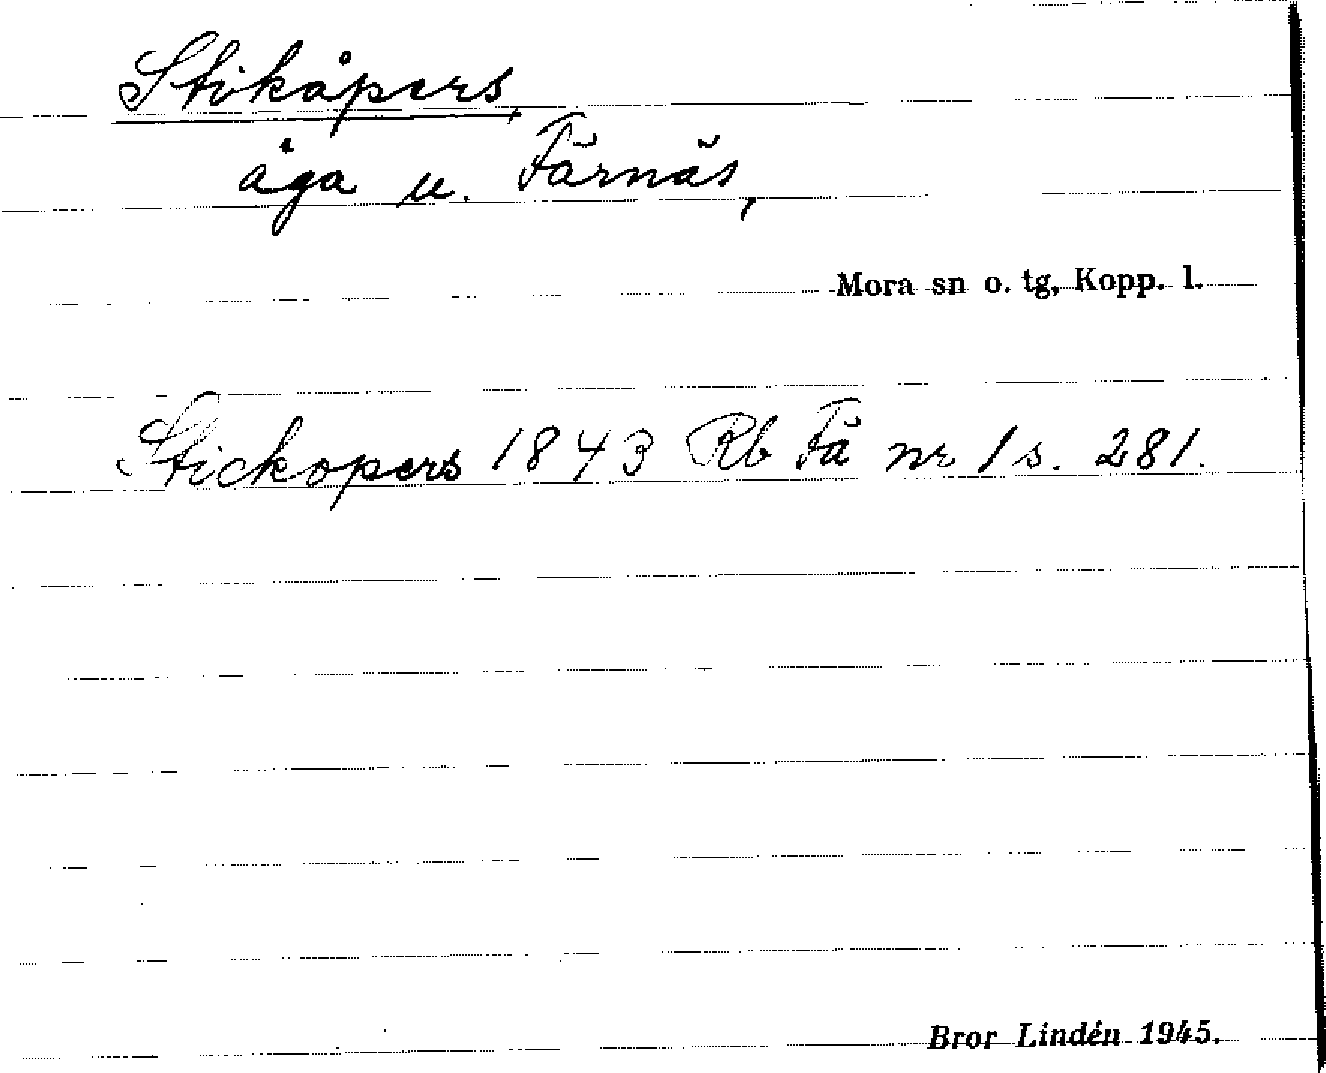 Stikåpers,
äga u. Färnäs,
Mora sn o. tg, Kopp. l.
Stickopers 1843 Rb Fä nr 1 s. 281.
Bror Lindén 1945.